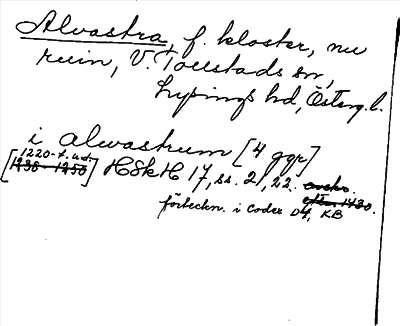 Alvastra, f. kloster, nu
ruin, V. Tollstads sn,
Lysings hd, Österg. l.
i alvastrum [4 ggr]
1220-t. ed.
[1238-1250] HSkH 17, ss. 21, 22. avskr.
efter 1430.
förteckn. i Codex D4, KB